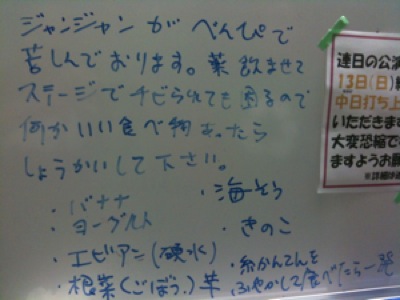 ジャンジャンが べんぴで
苦しんでおります。薬飲ませて
ステージでチビられても困るので
何かいい食べ物あったら
しょうかいして下さい。
・バナナ
・ヨーグルト
・エビアン(硬水)
・根菜(ごぼう、)芋
・海そう
・きのこ
・糸かんてんを
ふやかして食べたら一発
連日の公演
13日(日)終
中日打ち上
いただきます
大変恐縮で
ますようお願
※詳細は